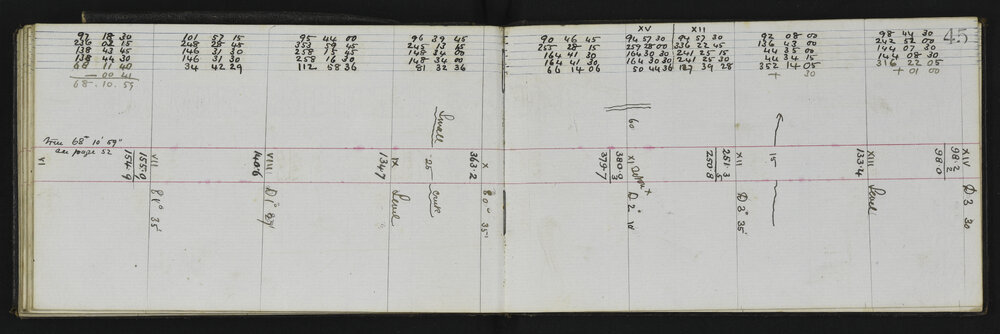 97 18 30
236 02 15
138 43 45
138 44 30
68 11 40
— 00 41
68 . 10 . 59
101 57 15
248 28 45
146 31 30
146 31 30
34 42 29
95 44 00
353 59 45
258 15 45
258 16 30
112 58 36
96 39 45
245 13 15
148 34 00
81 32 36
90 46 45
255 28 15
164 41 30
164 41 30
66 14 06
XV
94 57 30
259 28 00
164 30 30
164 30 30
50 44 36
XII
94 57 30
336 22 45
241 25 15
241 25 30
187 39 28
92 08 00
136 43 00
44 35 00
44 34 15
352 14 05
+ 30
98 44 30
242 52 00
144 07 30
144 08 30
316 22 05
+ 01 00
45
68° 10' 59"
on page 52
VI
VII
155.0
154.9
VIII
140.6
D 1°
IX
134.7
Level
Small
25
creek
X
363.2
35'
60
XI
380.3
379.7
D 2°
XII
251.3
250.8
D 3° 35'
15
XIII
133.4
Level
XIV
98.2
98.0
D 3 30